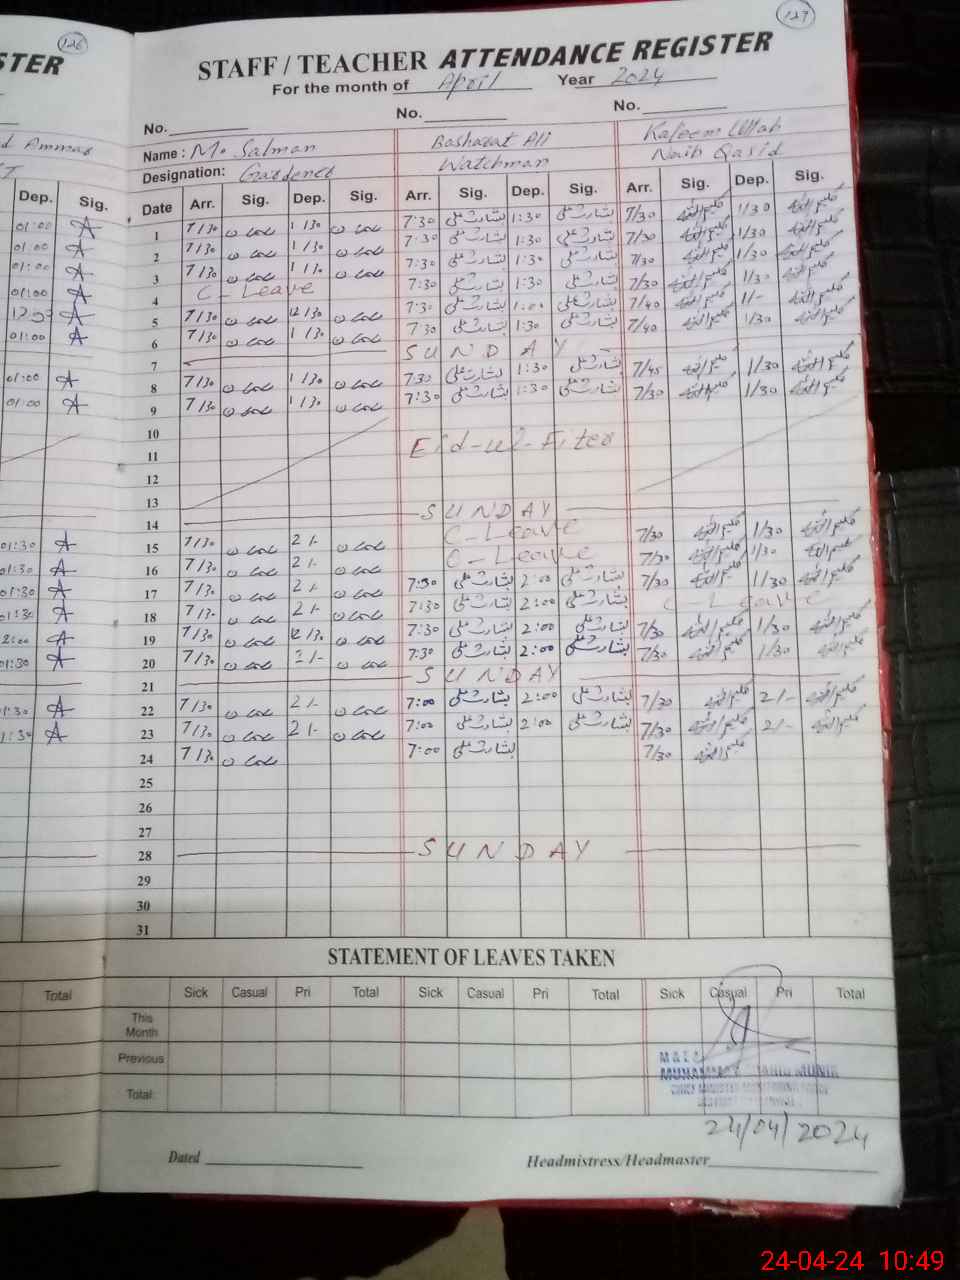 126
127
STER
STAFF / TEACHER ATTENDANCE REGISTER
For the month of April Year 2024
No. No. No.
Name : M. Salman Basharat Ali Kaleem Ullah
Designation: Gardener Watchman Naib Qasid
Dep. Sig. Date Arr. Sig. Dep. Sig. Arr. Sig. Dep. Sig. Arr. Sig. Dep. Sig.
01:00 1 7/30 1/30 7:30 بشارت علی 1:30 بشارت علی 7/30 کلیم اللہ 1/30 کلیم اللہ
01:00 2 7/30 1/30 7:30 بشارت علی 1:30 بشارت علی 7/30 کلیم اللہ 1/30 کلیم اللہ
01:00 3 7/30 1/30 7:30 بشارت علی 1:30 بشارت علی 7/30 کلیم اللہ 1/30 کلیم اللہ
01:00 4 C-Leave 7:30 بشارت علی 1:30 بشارت علی 7/30 کلیم اللہ 1/30 کلیم اللہ
5 7/30 12/30 7:30 بشارت علی 1:00 بشارت علی 7/40 کلیم اللہ 1/- کلیم اللہ
01:00 6 7/30 1/30 7:30 بشارت علی 1:30 بشارت علی 7/40 کلیم اللہ 1/30 کلیم اللہ
7 SUNDAY
01:00 8 7/30 1/30 7:30 بشارت علی 1:30 بشارت علی 7/45 کلیم اللہ 1/30 کلیم اللہ
01:00 9 7/30 1/30 7:30 بشارت علی 1:30 بشارت علی 7/30 کلیم اللہ 1/30 کلیم اللہ
10
11 Eid-ul-Fiter
12
13
14 SUNDAY
01:30 15 7/30 2/- C-Leave 7/30 کلیم اللہ 1/30 کلیم اللہ
01:30 16 7/30 2/- C-Leave 7/30 کلیم اللہ 1/30 کلیم اللہ
01:30 17 7/30 2/- 7:30 بشارت علی 2:00 بشارت علی 7/30 کلیم اللہ 1/30 کلیم اللہ
01:30 18 7/30 2/- 7:30 بشارت علی 2:00 بشارت علی C-Leave
2:00 19 7/30 12/30 7:30 بشارت علی 2:00 بشارت علی 7/30 کلیم اللہ 1/30 کلیم اللہ
01:30 20 7/30 2/- 7:30 بشارت علی 2:00 بشارت علی 7/30 کلیم اللہ 1/30 کلیم اللہ
21 SUNDAY
1:30 22 7/30 2/- 7:00 بشارت علی 2:00 بشارت علی 7/30 کلیم اللہ 2/- کلیم اللہ
1:30 23 7/30 2/- 7:00 بشارت علی 2:00 بشارت علی 7/30 کلیم اللہ 2/- کلیم اللہ
24 7/30 7:00 بشارت علی 7/30 کلیم اللہ
25
26
27
28 SUNDAY
29
30
31
STATEMENT OF LEAVES TAKEN
Total Sick Casual Pri Total Sick Casual Pri Total Sick Casual Pri Total
This Month
Previous
Total:
24/04/2024
Dated Headmistress/Headmaster
24-04-24 10:49